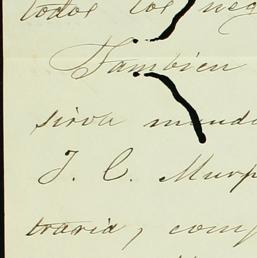 todos los neg
Tambien
sirva mande
J. C. Murp
traria, comp